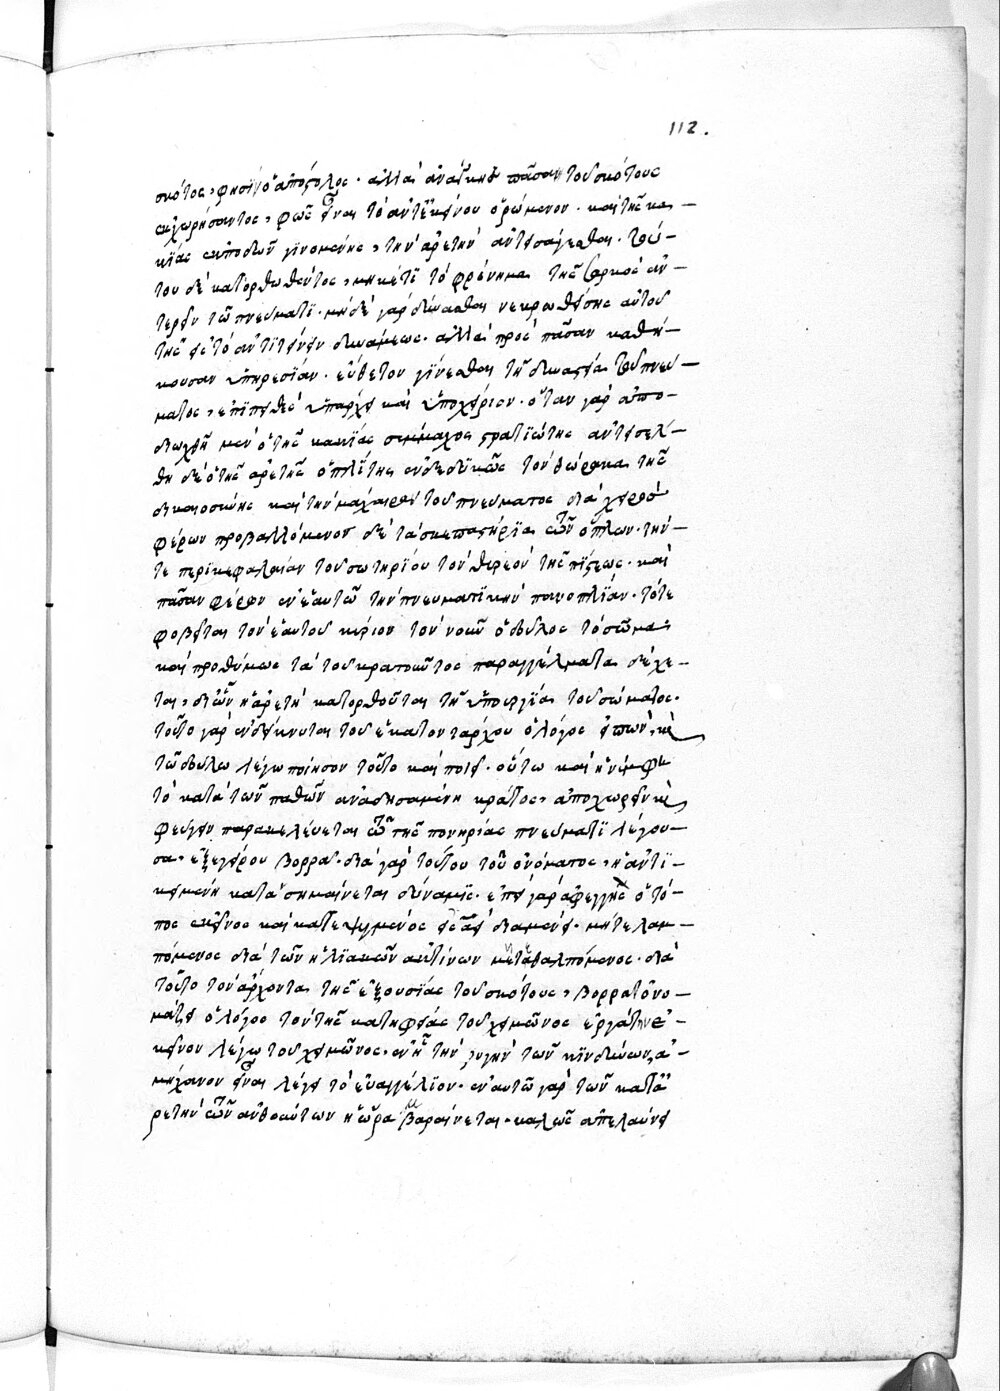 112.
σκότος, φησὶν ὁ ἀπόστολος. ἀλλὰ ἀνάγκη πᾶσα τοῦ σκότους
ἐκχωρήσαντος, φῶς εἶναι τὸ ἀντ' ἐκείνου ὁρώμενον. καὶ τῆς κα-
κίας ἐκποδῶν γινομένης, τὴν ἀρετὴν ἀντεισάγεσθαι. τού-
του δὲ κατορθωθέντος, μηκέτι τὸ φρόνημα τῆς σαρκὸς ἀν-
ταίρειν τῶ πνεύματι. μηδὲ γὰρ δύνασθαι νεκρωθείσης αὐτοῦ
τῆς εἰς τὸ ἀντιτείνειν δυνάμεως. ἀλλὰ πρὸς πᾶσαν καθή-
κουσαν ὑπηρεσίαν. εὔθετον γίνεσθαι τῆ δυναστεία τοῦ πνεύ-
ματος, ἐπιπειθές ὑπάρχει καὶ ὑποχείριον. ὅταν γὰρ ἀπο-
διωχθῆ μὲν ὁ τῆς κακίας σύμμαχος στρατιώτης ἀντεισέλ-
θη δὲ ὁ τῆς ἀρετῆς ὁπλίτης ἐνδεδυκὼς τὸν θώρακα τῆς
δικαιοσύνης καὶ τὴν μάχαιραν τοῦ πνεύματος διὰ χειρὸς
φέρων προβαλλόμενος δὲ τὰ σκεπαστήρια τῶν ὅπλων. τήν-
τε περικεφαλαίαν τοῦ σωτηρίου τὸν θυρεὸν τῆς πίστεως. καὶ
πᾶσαν φέρειν ἐν ἑαυτῶ τὴν πνευματικὴν πανοπλίαν. τότε
φοβεῖται τὸν ἑαυτοῦ κύριον τὸν νοῦν ὁ δοῦλος τὸ σῶμα
καὶ προθύμως τὰ τοῦ κρατοῦντος παραγγέλματα δέχε-
ται, δι' ὧν ἡ ἀρετὴ κατορθοῦται τῆ ὑπουργία τοῦ σώματος.
τοῦτο γὰρ ἐνδείκνυται τοῦ ἑκατοντάρχου ὁ λόγος εἰπὼν, καὶ
τῶ δούλω λέγω ποίησον τοῦτο καὶ ποιεῖ. οὕτω καὶ ἡ νύμφη
τὸ κατὰ τῶν παθῶν ἀναδησαμένη κράτος, ἀποχωρεῖν καὶ
φεύγειν παρακελεύεται τῶ τῆς πονηρίας πνεύματι λέγου-
σα. ἐξεγείρου βορρᾶ. διὰ γὰρ τούτου τοῦ ὀνόματος, ἡ ἀντι-
κειμένη κατασημαίνεται δύναμις. ἐπεὶ γὰρ ἀφεγγὴς ὁ τό-
πος ἐκεῖνος καὶ κατεψυγμένος εἰσαεὶ διαμένει. μήτε λαμ-
πόμενος διὰ τῶν ἡλιακῶν ἀκτίνων μήτε θαλπόμενος. διὰ
τοῦτο τὸν ἄρχοντα τῆς ἐξουσίας τοῦ σκότους, βορρᾶν ὀνο-
μάζει ὁ λόγος τὸν τῆς κατηφείας τοῦ χειμῶνος ἐργάτην ἐ-
κεῖνον λέγω τοῦ χειμῶνος. ἐν ᾧ τὴν φυγὴν τῶν κινδύνων, ἀ-
μήχανον εἶναι λέγει τὸ εὐαγγέλιον. ἐν αὐτῶ γὰρ τῶν κατὰ
ἀρετὴν τῶν ἀνθούντων ἡ ὥρα μαραίνεται. καλῶς ἀπελαύνει